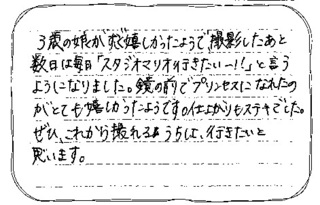 3歳の娘がすごく嬉しかったようで撮影したあと
数日は毎日「スタジオマリオ行きたいー!!」と言う
ようになりました。鏡の前でプリンセスになれたの
がとても嬉しかったようです。仕上がりもステキでした。
ぜひ、これから撮れるようちは、行きたいと
思います。